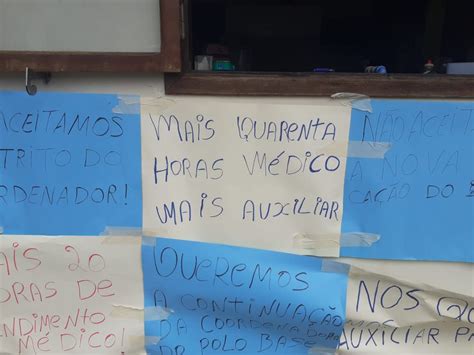 ACEITAMOS
TRITO DO
DENADOR!
MAIS QUARENTA
HORAS MÉDICO
MAIS AUXILIAR
NÃO ACEIT
A NOVA
CAÇÃO DO
AIS 20
ORAS DE
ENDIMENTO
MÉDICO!
QUEREMOS
A CONTINUAÇÃO
DA COORDENADORA
DO POLO BASE
NOS QU
AUXILIAR P